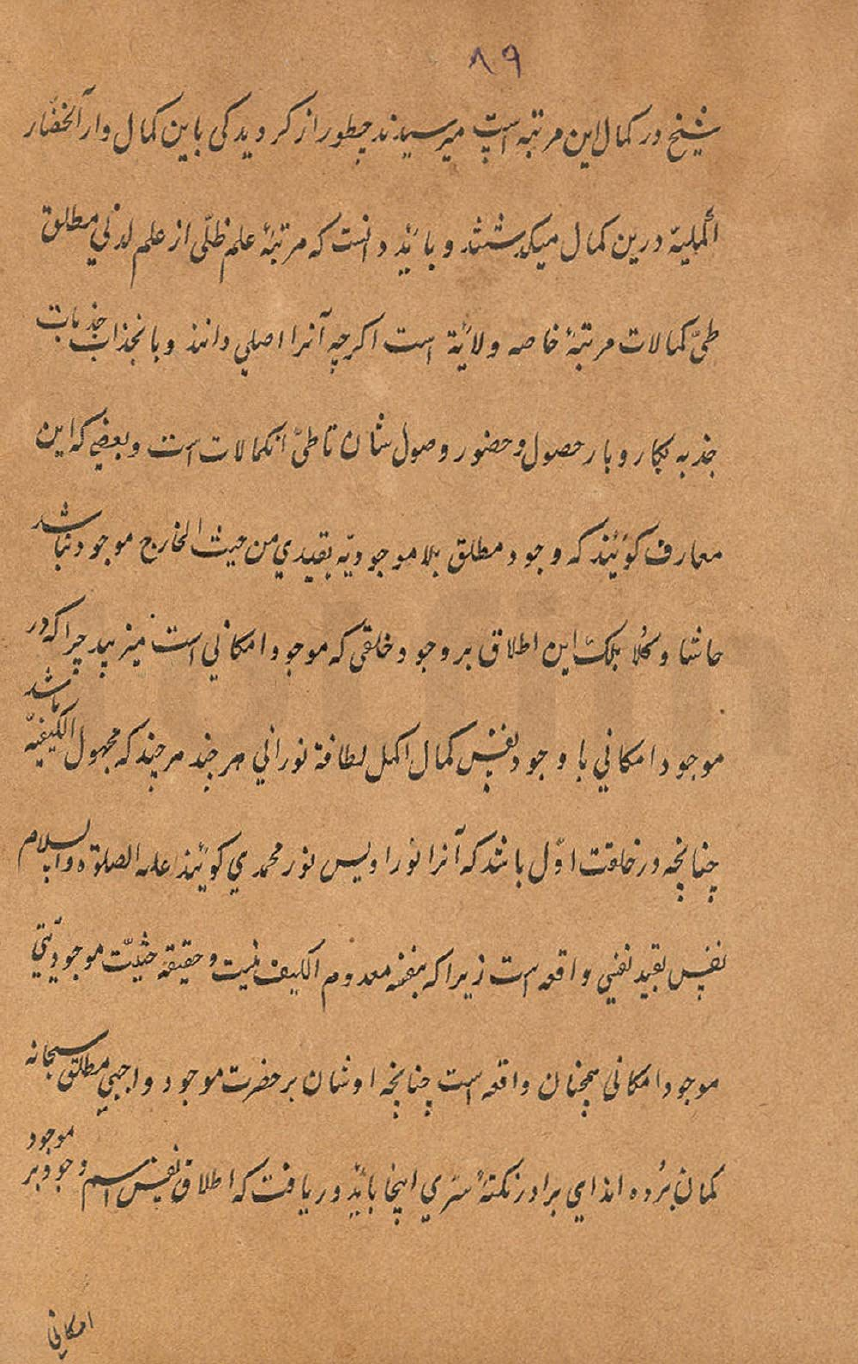 ۸۹
شیخ در کمال این مرتبه است میرسیدند چطور از کرویدکی باین کمال و از
در این کمال میکذشتند و بائید دانست که مرتبهٔ علم ظلّی از علم لدنی مطلق
طیّ کمالات مرتبهٔ خاصه ولایة است اکرچه آنرا اصلی دانند و بانجذاب جذبات
جذبه بکار و بار حصول و حضور وصول شان تا طیّ آنکمالات است و بعضی که این
معارف کوئیند که وجود مطلق بلا موجودیّه بقیدی من حیث الخارج موجود نباشد
حاشا وکلا بلکّ این اطلاق بر وجود خلقی که موجود امکانی است میزیبد چرا که در
موجود امکانی با وجود نفس کمال اکمل لطافة نورانی هر چند هر چند که مجهول الکیفیّه باشد
چنانچه در خلقت اوّل باشد که آنرا نور اویس نور محمدی کوئیند علیه الصلوة والسلام
نفس بقید نفی واقعه است زیرا که بنفسه معدوم الکیف نیست و حقیقة حیثیّت موجودیّتی
موجود امکانی همچنان واقعه است چنانچه اوشان بر حضرت موجود واجبی مطلق سبحانه
کمان بُرده اند ای برادر نکتهٔ سرّی اینجا بائید دریافت که اطلاق نفس اسم وجود بر موجود
امکانی